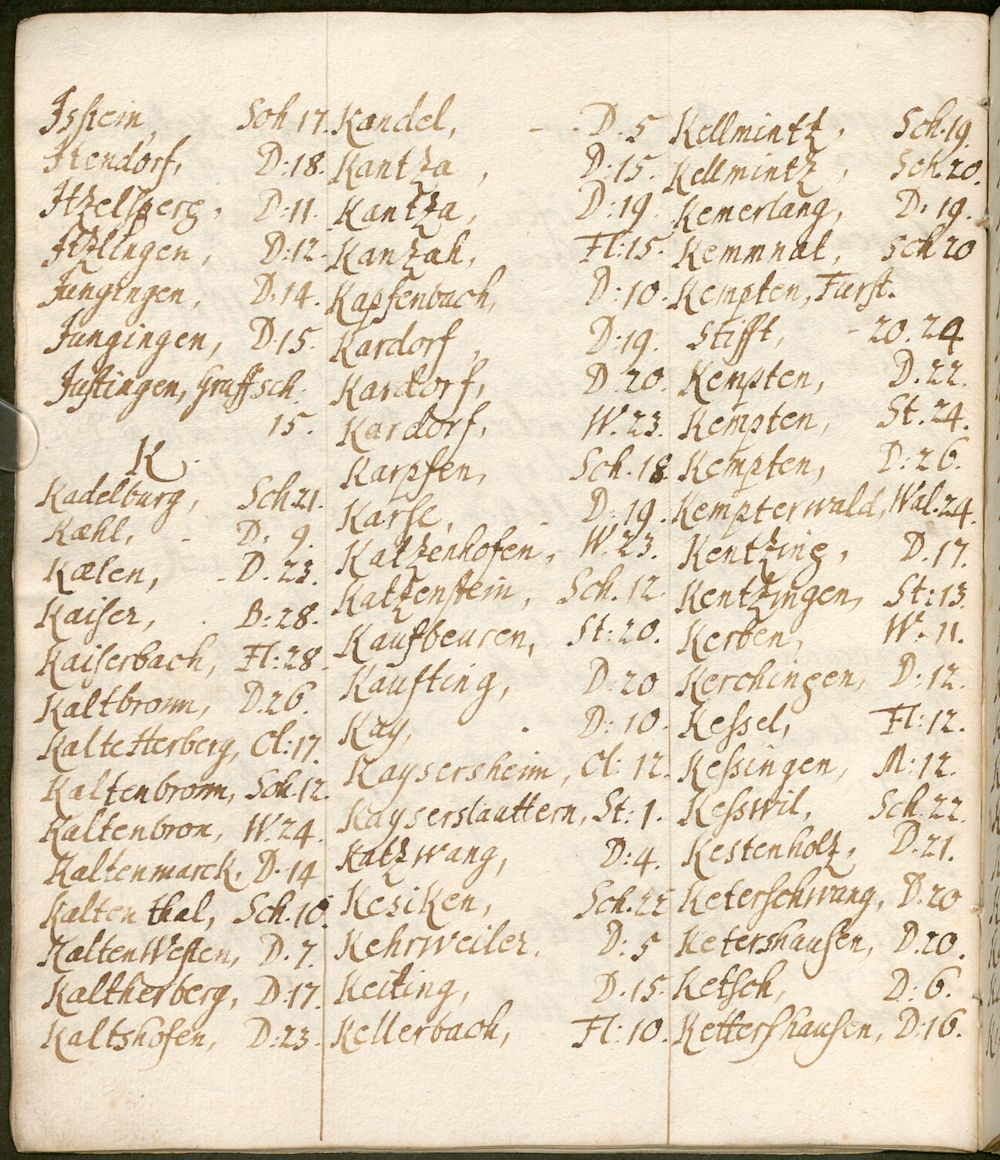 Isstein, Sch 17.
Itendorf, D: 18.
Itzelsperg, D: 11.
Itzlingen, D: 12.
Jungingen, D. 14.
Jungingen, D. 15.
Justingen, Graffsch.
15.
K.
Kadelburg, Sch 21.
Kæhl, D. 9.
Kælen, D. 23.
Kaiser, B: 28.
Kaiserbach, Fl: 28.
Kaltbronn, D. 26.
Kalte Herberg, Cl: 17.
Kaltenbronn, Sch. 12.
Kaltenbron, W. 24.
Kaltenmarck, D. 14
Kaltenthal, Sch. 10.
KaltenWesten, D. 7.
Kaltherberg, D. 17.
Kaltshofen, D: 23.
Kandel, D. 5
Kantza, D: 15.
Kantza, D: 19.
Kanzah, Fl: 15.
Kapfenbach, D: 10.
Kardorf, D: 19.
Kardorf, D. 20.
Kardorf, W. 23.
Karpfen, Sch. 18.
Karse, D. 19.
Katzenhofen, W. 23.
Katzenstein, Sch. 12.
Kaufbeuren, St: 20.
Kaufting, D. 20
Kay, D: 10.
Kaysersheim, Cl: 12.
Kayserslauttern, St: 1.
Katzwang, D: 4.
Kesiken, Sch. 22
Kehrweiler, D: 5
Keiting, D. 15.
Kellerbach, Fl: 10.
Kellmintz, Sch. 19.
Kellmintz, Sch 20.
Kemerlang, D. 19.
Kemmnat, Sch 20
Kempten, Furst.
Stifft, - 20. 24
Kempten, D. 22.
Kempten, St. 24.
Kempten, D: 26.
Kempterwald, Wal. 24.
Kentzing, D. 17.
Kentzingen, St: 13.
Kerben, W. 11.
Kerchingen, D: 12.
Kessel, Fl: 12.
Kessingen, M: 12.
Kesswil, Sch. 22.
Kestenholz, D. 21.
Keterschwang, D. 20
Ketershausen, D. 20.
Ketsch, D: 6.
Kettershausen, D: 16.